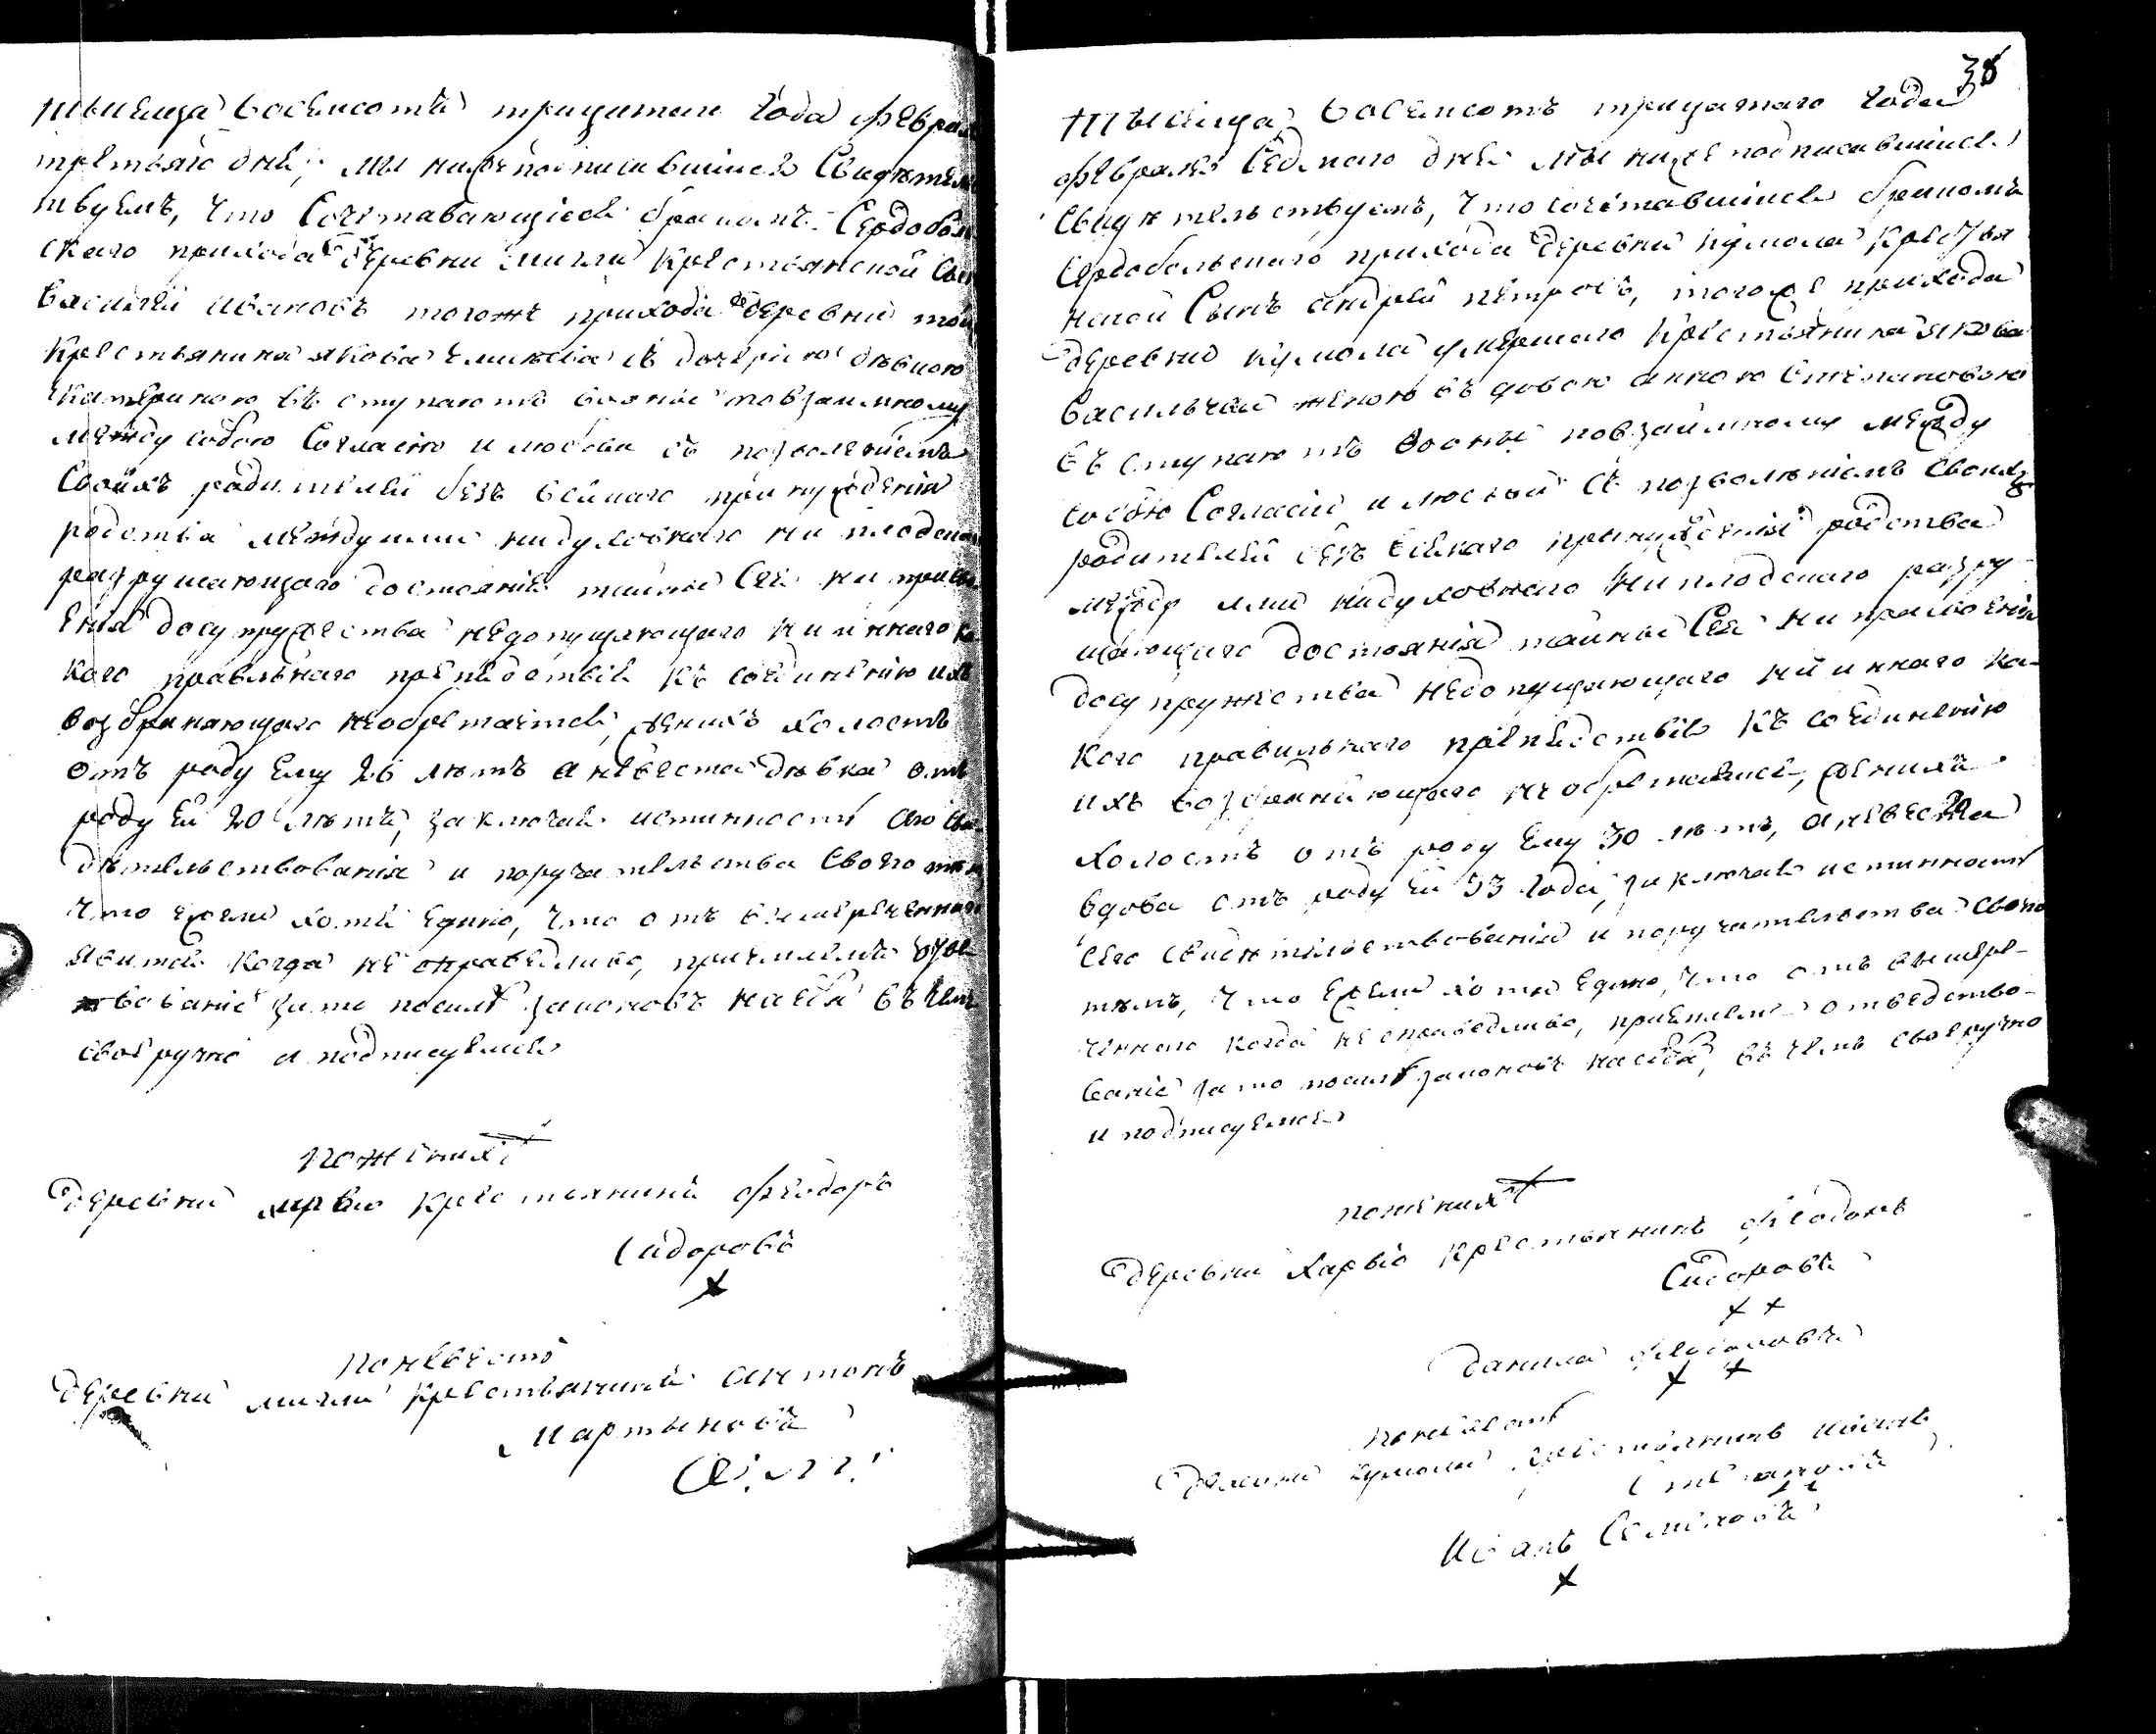 тысяща восемсотъ тридцатаго года февраля
третьяго дня, мы нижеподписавшіися свидѣтель
твуемъ, что сочетавающіеся бракомъ Сердоболь
скаго прихода деревни крестьянской сынъ
Василей Ивановъ тогоже прихода деревни той
крестьянина Якова съ дочерью дѣвкою
Катериною въ ступаютъ во оный по взаимному
между собою согласію и любови съ позволеніемъ
своихъ родителей безъ всякаго принужденія
родства между ими ни духовнаго ни плодскаго
разрушающаго достоянія тайны сея ни
досупружества недопущающаго ни иннаго ка
кого правильнаго препядствія къ соединенію ихъ
возбраняющаго необретается, женихъ холостъ
отъ роду ему 26 лѣтъ а невеста дѣвка отъ
роду ей 20 лѣтъ, заключая истинность сего сви
дѣтельствованія и поручательства своего тѣмъ
что ежели хотя едино, что отъ вышереченнаго
явится когда не справедливо, приемлемъ
вованіе за то по силѣ законовъ на себя въ чемъ
своеручно и подписуемся
по женихѣ
деревни Харвіо крестьянинъ Феодоръ
Сидоровъ
х
по невестѣ
деревни крестьянинъ Антонъ
Мартыновъ
38
тысяща восемсотъ тридцатаго года
февраля седмаго дня мы ниже подписавшіися
свидѣтельствуемъ, что сочетавшіися бракомъ
Сердобольскаго прихода деревни Кумола крестья
нской сынъ Андрей Петровъ, тогоже прихода
деревни Кумола умершаго крестьянина Якова
Васильева женою въдовою Анною Степановою
въ ступаютъ во оный по взаимному между
собою согласію и любови съ позволѣніемъ своихъ
родителей безъ всякаго принужденія родства
между ими ни духовнаго ни плодскаго разру
шающаго достоянія тайны сея ни
досупружества недопущающаго ни иннаго ка-
кого правильнаго препядствія къ соединенію
ихъ возбраняющаго не обреталися, женихъ
холостъ отъ роду ему 30 лѣтъ, а невеста
вдова отъ роду ей 33 года, заключая истинность
сего свидѣтельствованія и поручательства своего
тѣмъ, что ежели хотя едино, что отъ вышере-
ченнаго когда не справедливо, приемлемъ отведство-
ваніе за то по силѣ законовъ на себя, въ чемъ своеручно
и подписуемся
по женихѣ
деревни Харвіо крестьянинъ Феодоръ
Сидоровъ
х х
Данила
х х
по невестѣ
деревни Кумола крестьянинъ Иванъ
Степановъ
Иванъ Семіоновъ
х